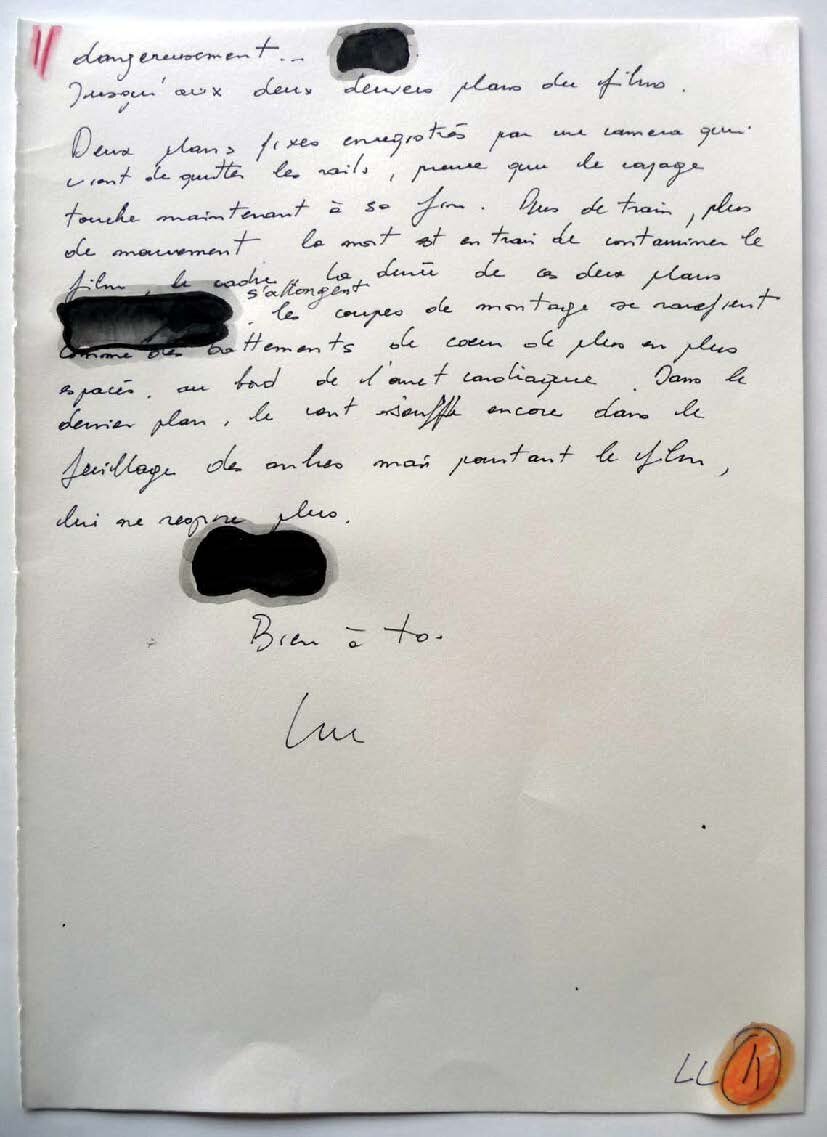 dangereusement...
Jusqu'aux deux derniers plans du film.
Deux plans fixes enregistrés par une camera qui
vient de quitter les rails, preuve que le voyage
touche maintenant à sa fin. Plus de train, plus
de mouvement la mort est en train de contaminer le
film, le cadre. La durée de ces deux plans
s'allongent
, les coupes de montage se raréfient
comme des battements de cœur de plus en plus
espacés, au bord de l'arret cardiaque. Dans le
dernier plan, le vent souffle encore dans le
feuillage des arbres mais pourtant le film,
lui ne respire plus.
Bien à toi
Luc
LL